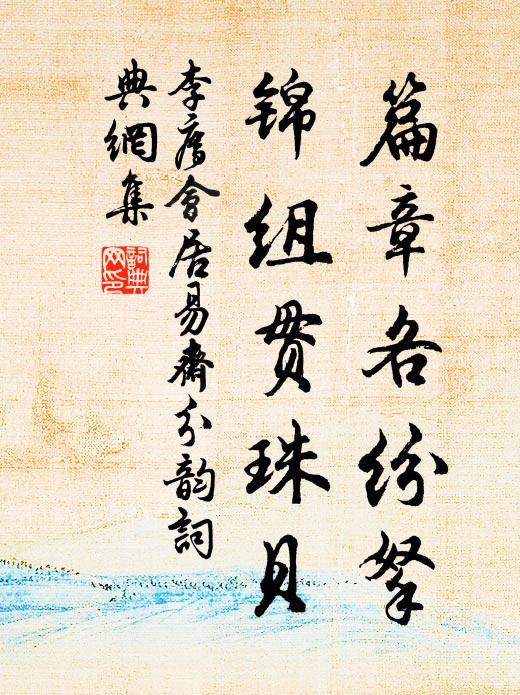 篇章各纷拏
锦组贯珠贝
李會居易齋分韵詞
典網集
詞典
网印